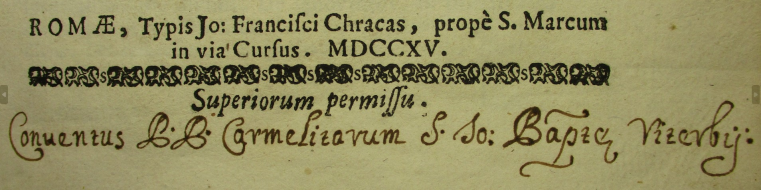 ROMÆ, Typis Jo: Franciſci Chracas, propè S. Marcum
in via Curſus. MDCCXV.
Superiorum permiſſu.
Conventus R.R. Carmelitarum S. Jo: Baptę Viterbij: